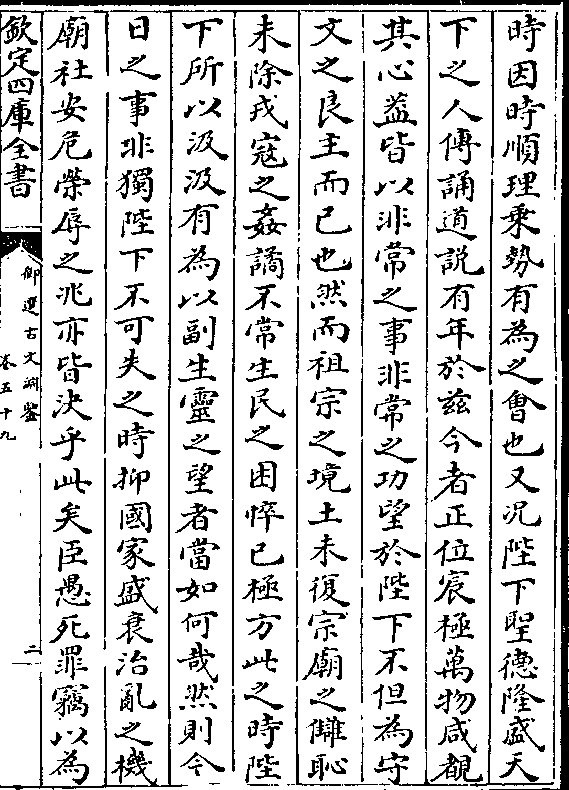 時因時順理乗勢有為之會也又况陛下聖德隆盛天
下之人傳誦道説有年於兹今者正位宸極萬物咸覩
其心蓋皆以非常之事非常之功望於陛下不但為守
文之良主而已也然而祖宗之境土未復宗廟之讎恥
未除戎寇之姦譎不常生民之困悴已極方此之時陛
下所以汲汲有為以副生靈之望者當如何哉然則今
日之事非獨陛下不可失之時抑國家盛衰治亂之機
廟社安危榮辱之兆亦皆決乎此矣臣愚死罪竊以為
欽定四庫全書
御選古文淵鑒
卷五十九
二